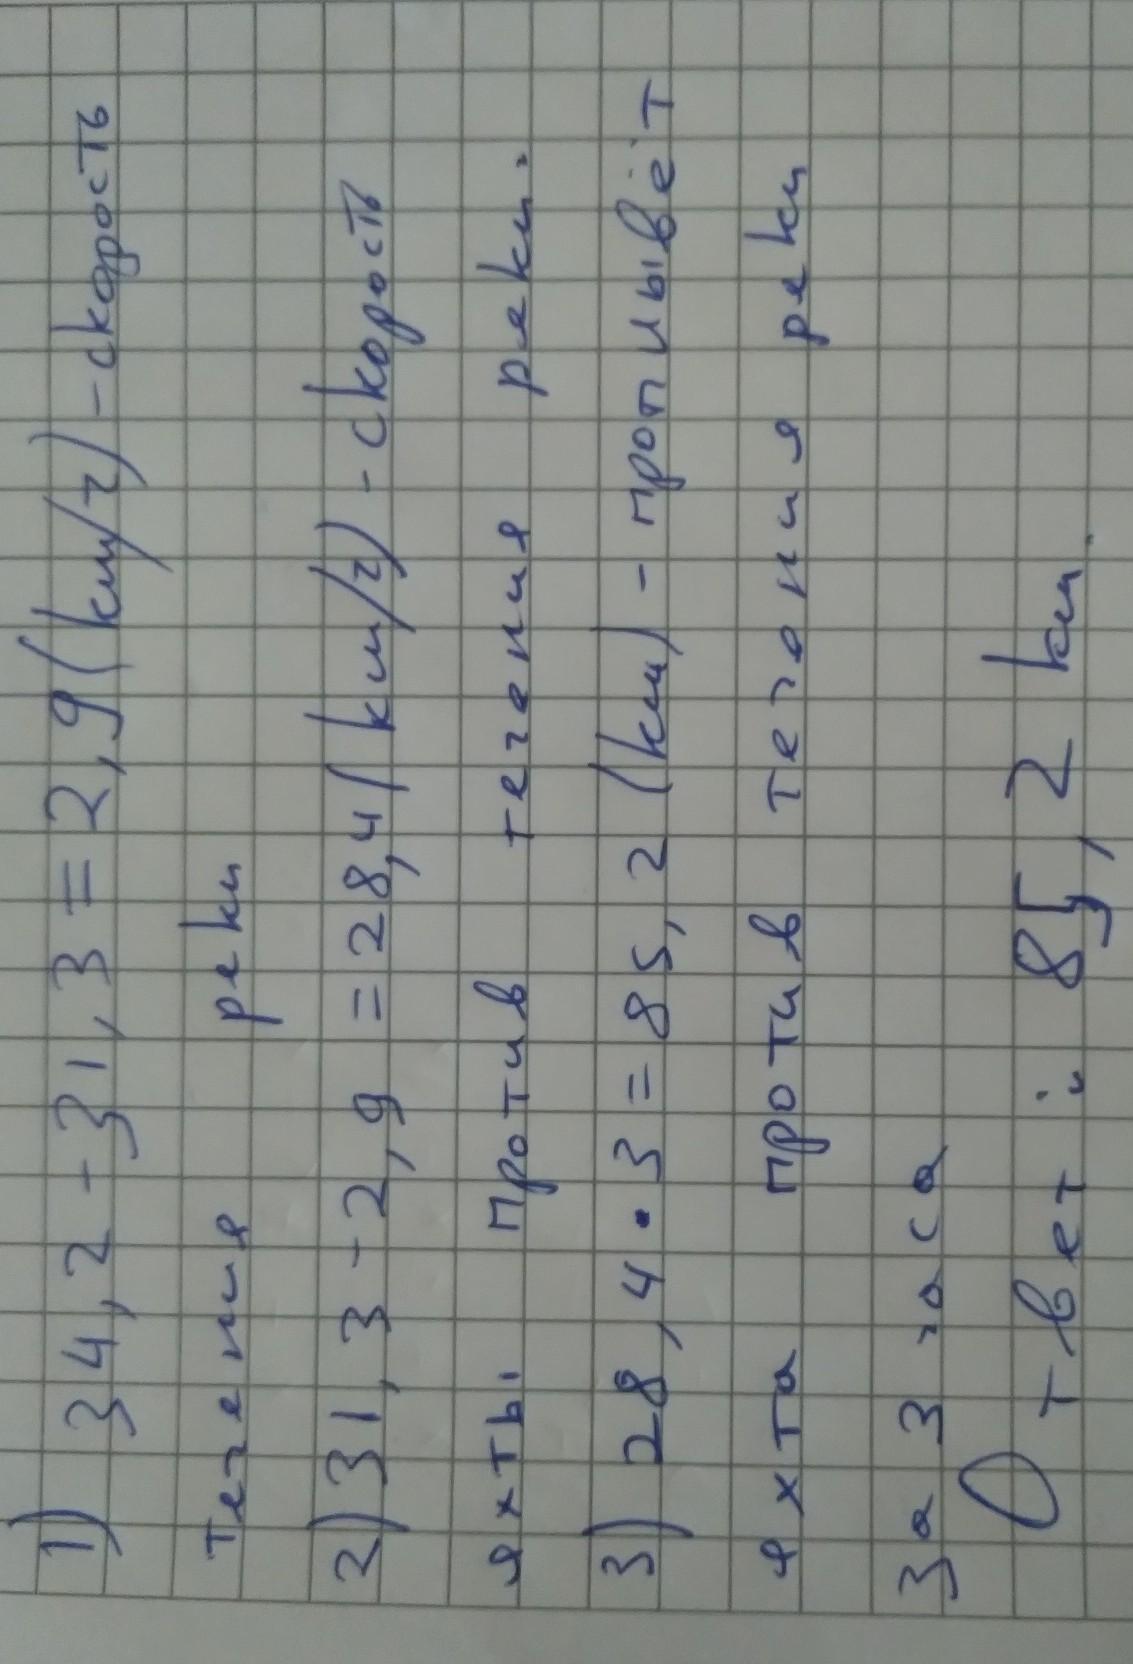 1) 34,2-31,3=2,9(км/ч)-скорость
течения реки
2) 31,3-2,9=28,4(км/ч)-скорость
яхты против течения реки.
3) 28,4•3=85,2(км)-проплывёт
яхта против течония реки
За 3 часа
Ответ: 85,2 км.